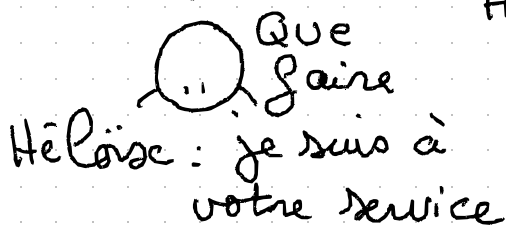 Que
faire
Héloïse : je suis à
votre service